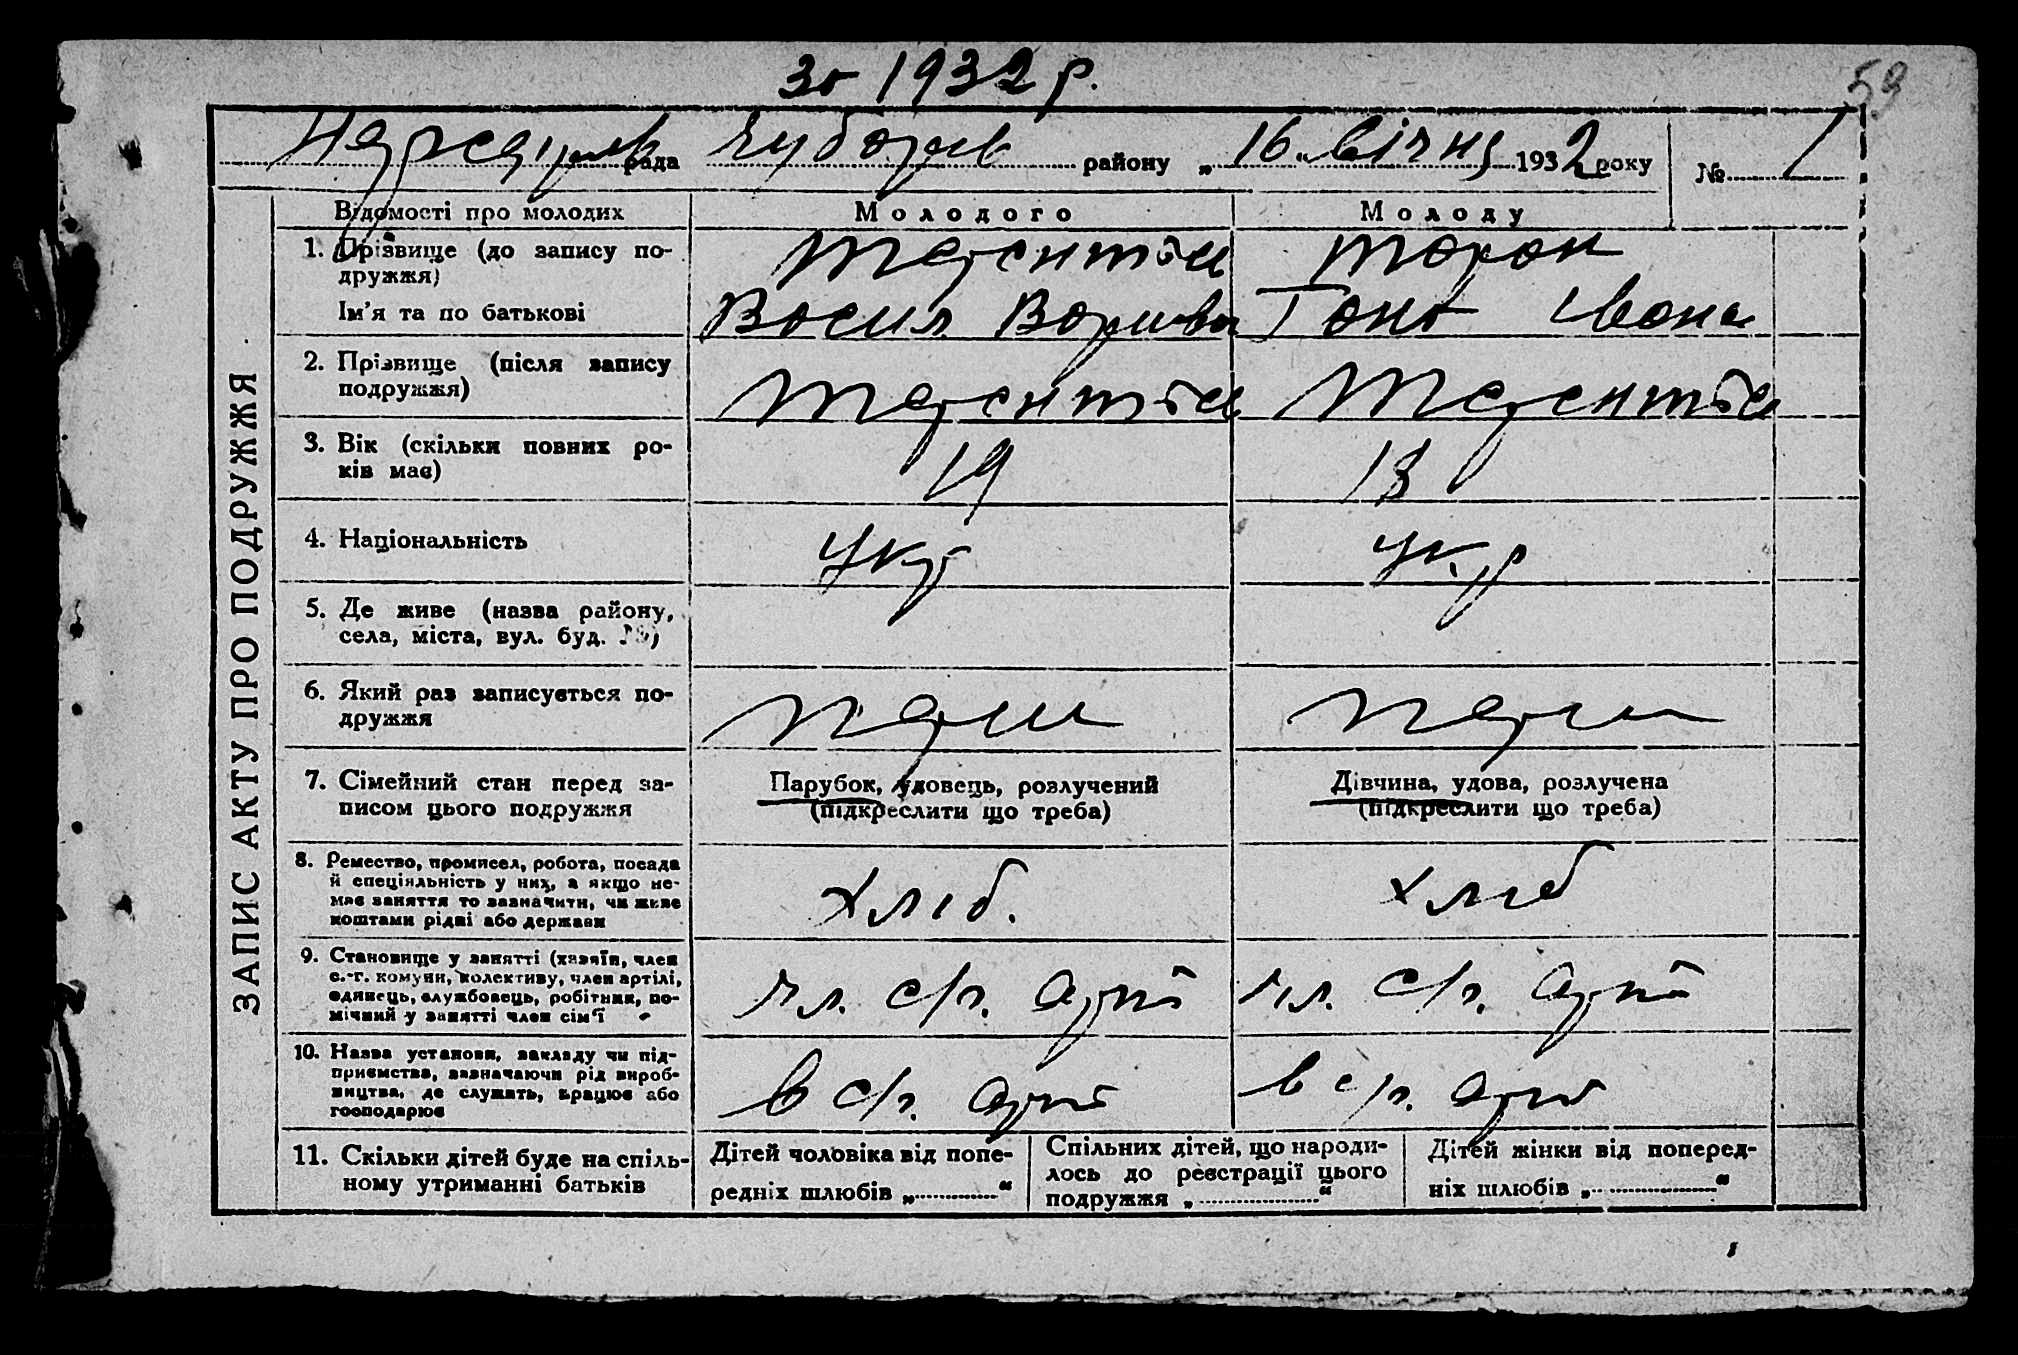 За 1932 р.
59
рада Чубарів району „16“ січня 1932 року № 1
ЗАПИС АКТУ ПРО ПОДРУЖЖЯ
Відомості про молодих Молодого Молоду
1. Прізвище (до запису по-
дружжя) Терентієв
Ім'я та по батькові Васил Івана
2. Прізвище (після запису
подружжя) Терентієв Терентієв
3. Вік (скільки повних ро-
ків має) 19 18
4. Національність Укр Укр
5. Де живе (назва району,
села, міста, вул. буд. №)
6. Який раз записується по-
дружжя перш перш
7. Сімейний стан перед за-
писом цього подружжя
Парубок, удовець, розлучений
(підкреслити що треба)
Дівчина, удова, розлучена
(підкреслити що треба)
8. Ремество, промисел, робота, посада
й спеціяльність у них, а якщо не-
має заняття то зазначити, чи живе
коштами рідні або держави
хліб. хліб
9. Становище у занятті (хазяїн, член
с.-г. комуни, колективу, член артілі,
одинець, службовець, робітник, по-
мічний у занятті член сім'ї
чл. с/г. арті чл. с/г. арті
10. Назва установи, закладу чи під-
приємства, зазначаючи рід вироб-
ництва, де служить, працює або
господарює
в с/г. арті в с/г. арті
11. Скільки дітей буде на спіль-
ному утриманні батьків
Дітей чоловіка від попе-
редніх шлюбів „ “
Спільних дітей, що народи-
лось до реєстрації цього
подружжя „ “
Дітей жінки від поперед-
ніх шлюбів „ “